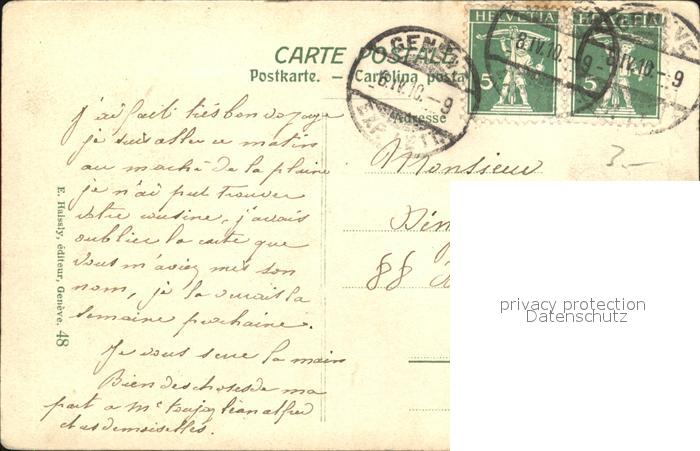 HELVETIA HELVETIA
5 5
GENÈVE
8.IV.10.-9
8.IV.10.-9
8.IV.10.-9
EXP. LETT.
CARTE POSTALE
Postkarte. — Cartolina posta
Adresse
3.-
j'ai fait très bon voyage
je suis allée ce matin
au marché de la plaine
je n'ai put trouver
votre cousine, j'avais
oublier la carte que
vous m'aviez mis son
nom, je la verrais la
semaine prochaine.
Je vous serre la main
Bien des choses de ma
part a Mr
et as demoiselles.
Monsieur
88
E. Haissly, éditeur, Genève. 48
privacy protection
Datenschutz